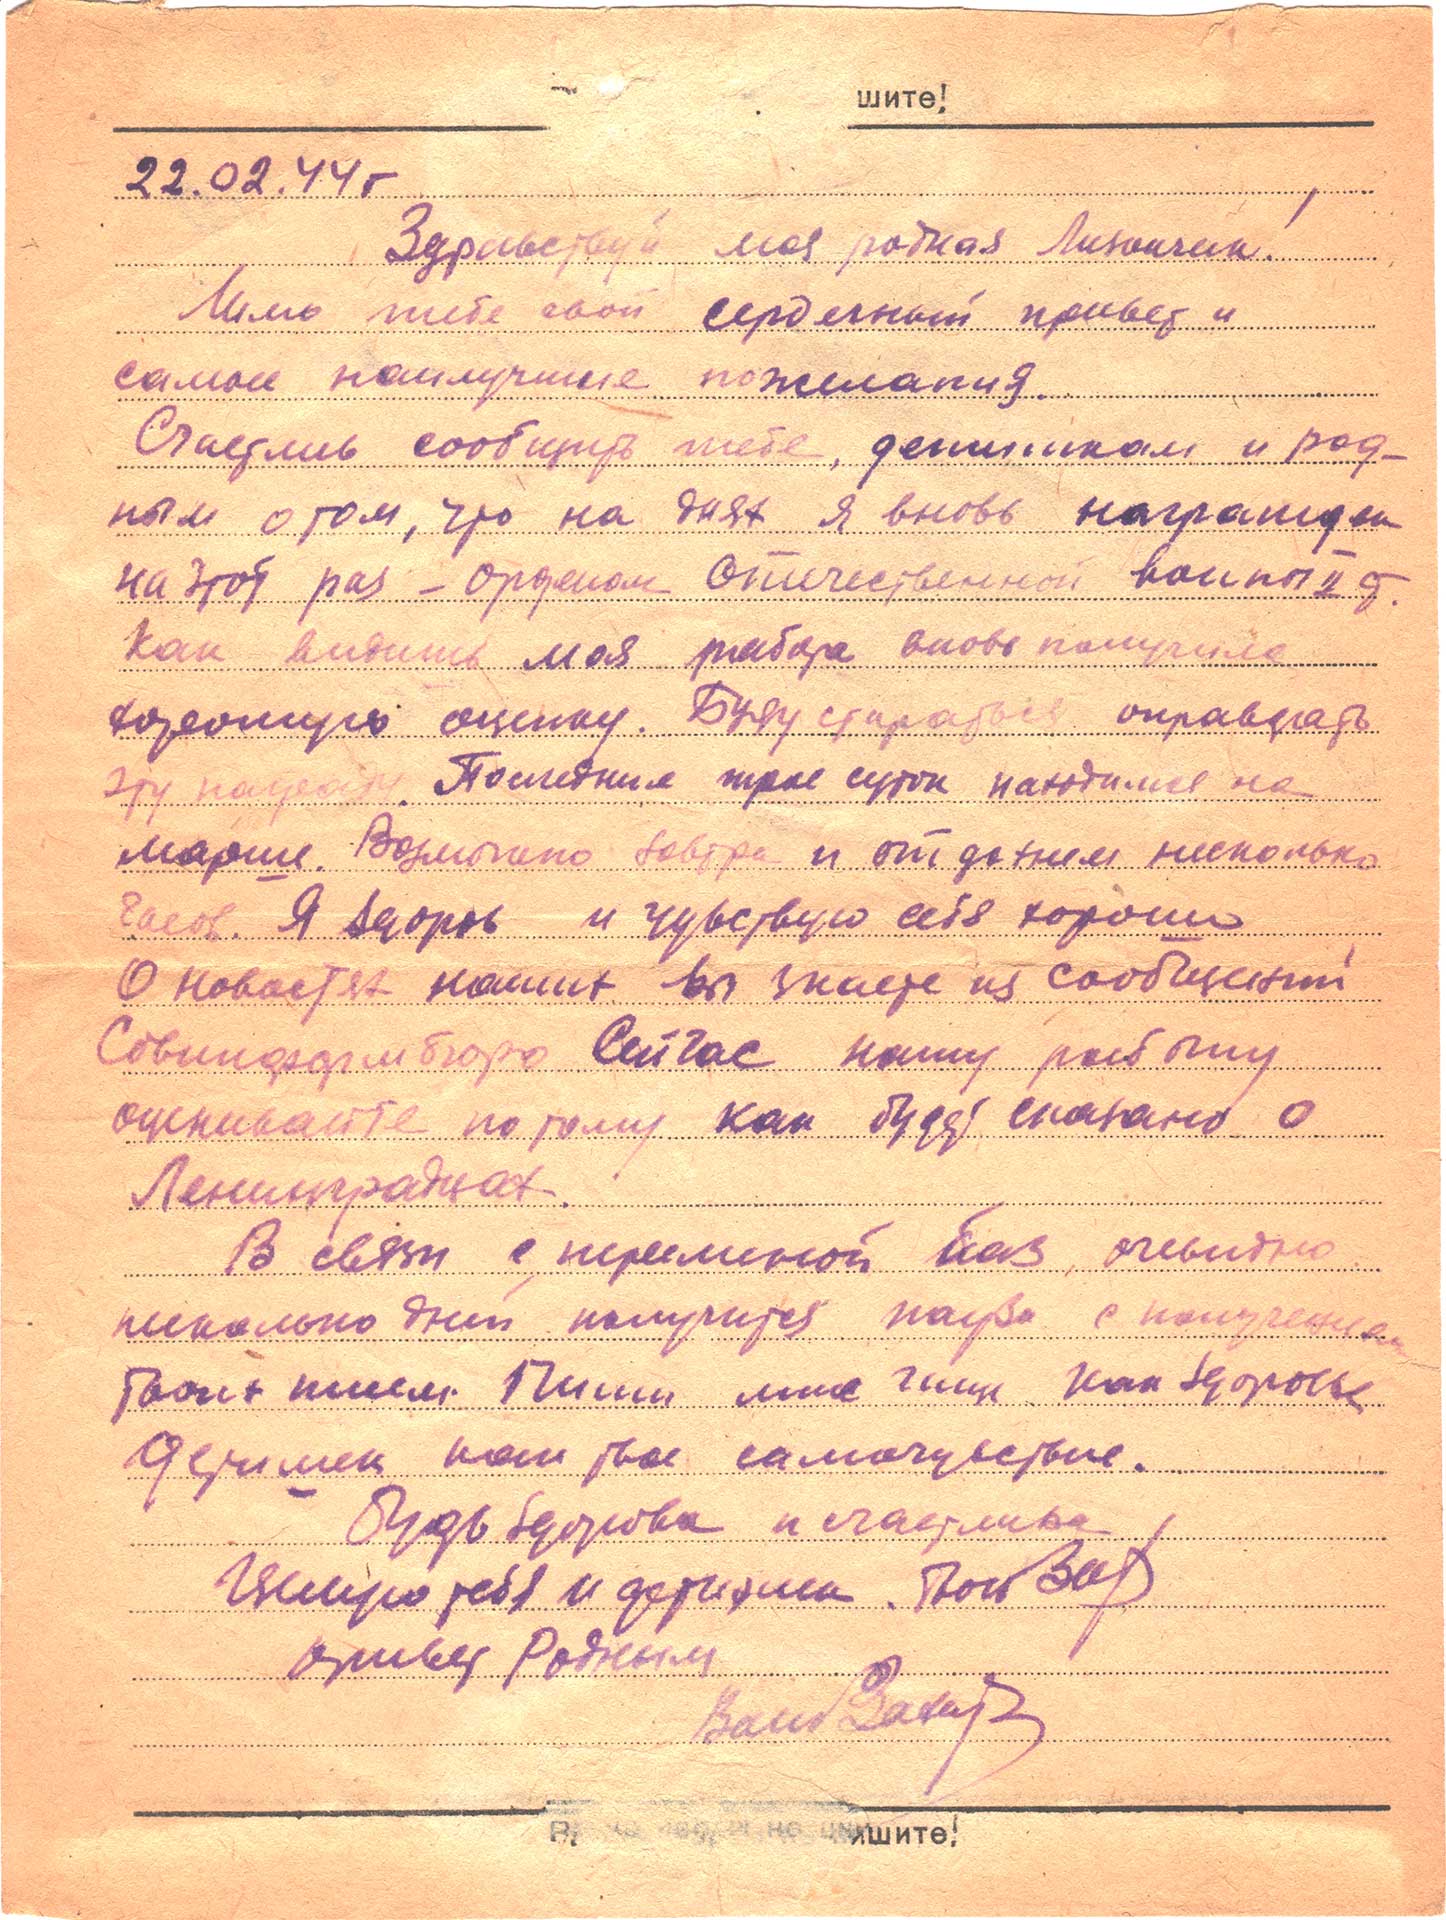 шите!
22.02.44г
Здравствуй моя родная Лизончик!
Шлю тебе свой сердечный привет и
самые наилучшие пожелания.
Счастлив сообщить тебе, детишкам и род-
ным о том, что на днях я вновь награжден
на этот раз – орденом Отечественной войны II ст.
Как видишь моя работа вновь получила
хорошую оценку. Буду стараться оправдать
эту надежду. Последние трое суток находимся на
марше. Возможно завтра и отдохнем несколько
часов. Я здоров и чувствую себя хорошо
О новостях наших вы знаете из сообщений
Совинформбюро Сейчас нашу работу
оценивайте по тому как будет сказано о
Ленинградцах.
В связи с переменой баз, очевидно
несколько дней получится пауза с получением
твоих писем. Пиши мне чаще как здоровье
детишек как твое самочувствие.
Будь здорова и счастлива
Целую тебя и детишек. Твой Зах
привет Родным
Ваш Захар
ишите!